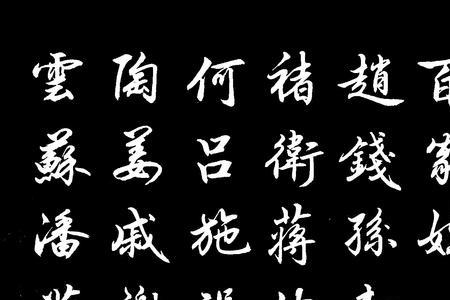 百家姓
趙錢孫
褚衛蔣
何呂施
陶姜戚
雲蘇潘